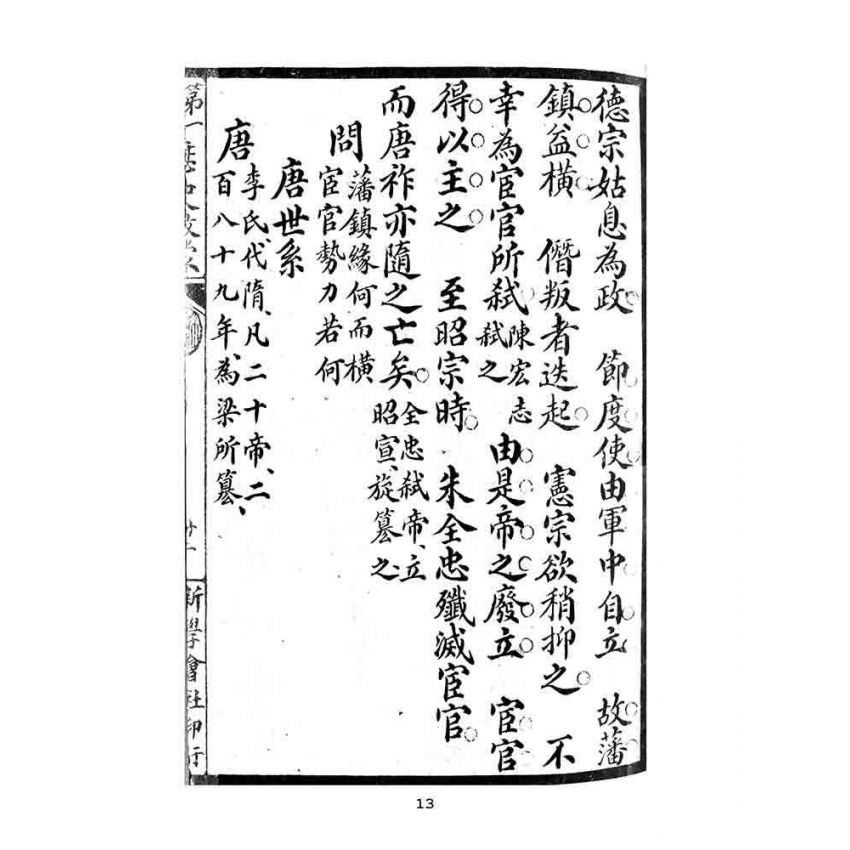 德宗姑息為政 節度使由軍中自立 故藩
鎮益橫 僭叛者迭起 憲宗欲稍抑之 不
幸為宦官所弒陳宏志弒之 由是帝之廢立 宦官
得以主之 至昭宗時 朱全忠殲滅宦官
而唐祚亦隨之亡矣全忠弒帝、立昭宣、旋篡之
問 藩鎮緣何而橫
宦官勢力若何
唐世系
唐 李氏、代隋、凡二十帝、二
百八十九年、為梁所篡、
第一
廿一
新學會社印行
13